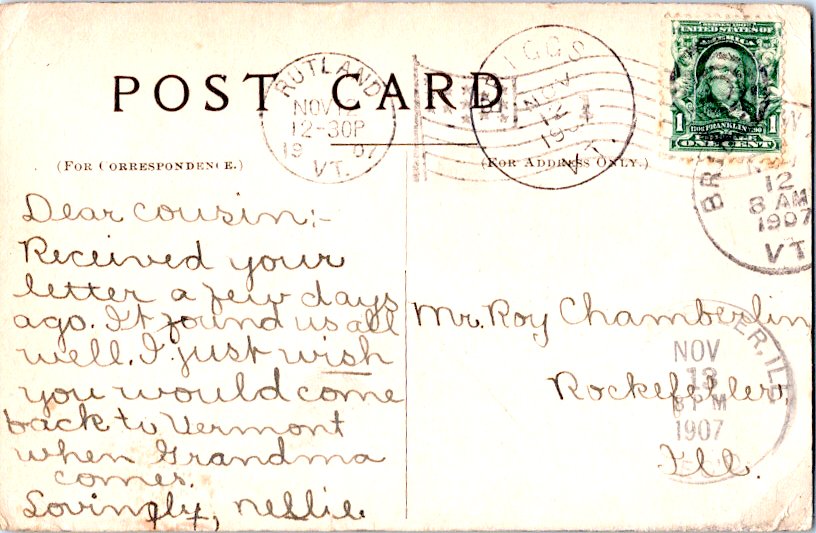 POST CARD
RUTLAND
NOV 12
12-30P
1907
VT.
RIGGS
NOV
12
190
VT.
UNITED STATES OF
AMERICA
1 FRANKLIN 1
ONE CENT
12
8 AM
1907
VT
(FOR CORRESPONDENCE.)
(FOR ADDRESS ONLY.)
Dear Cousin:-
Received your
letter a few days
ago. It found us all
well. I just wish
you would come
back to Vermont
when Grandma
comes.
Lovingly, Nellie.
Mr. Roy Chamberlin
Rockefeller
Ill.
ER, ILL
NOV
13
8 PM
1907